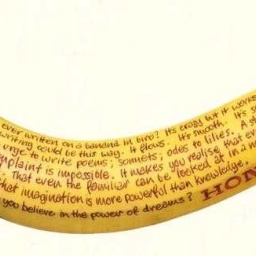 ever written on a banana in biro? Its crazy but it works
writing could be this way. It flows. It's smooth. It's s
urge to write poems; sonnets; odes to lilies. A
mplaint is impossible. It makes you realise that ev
. That even the familiar can be looked at in a n
that imagination is more powerful than knowledge.
you believe in the power of dreams? HON